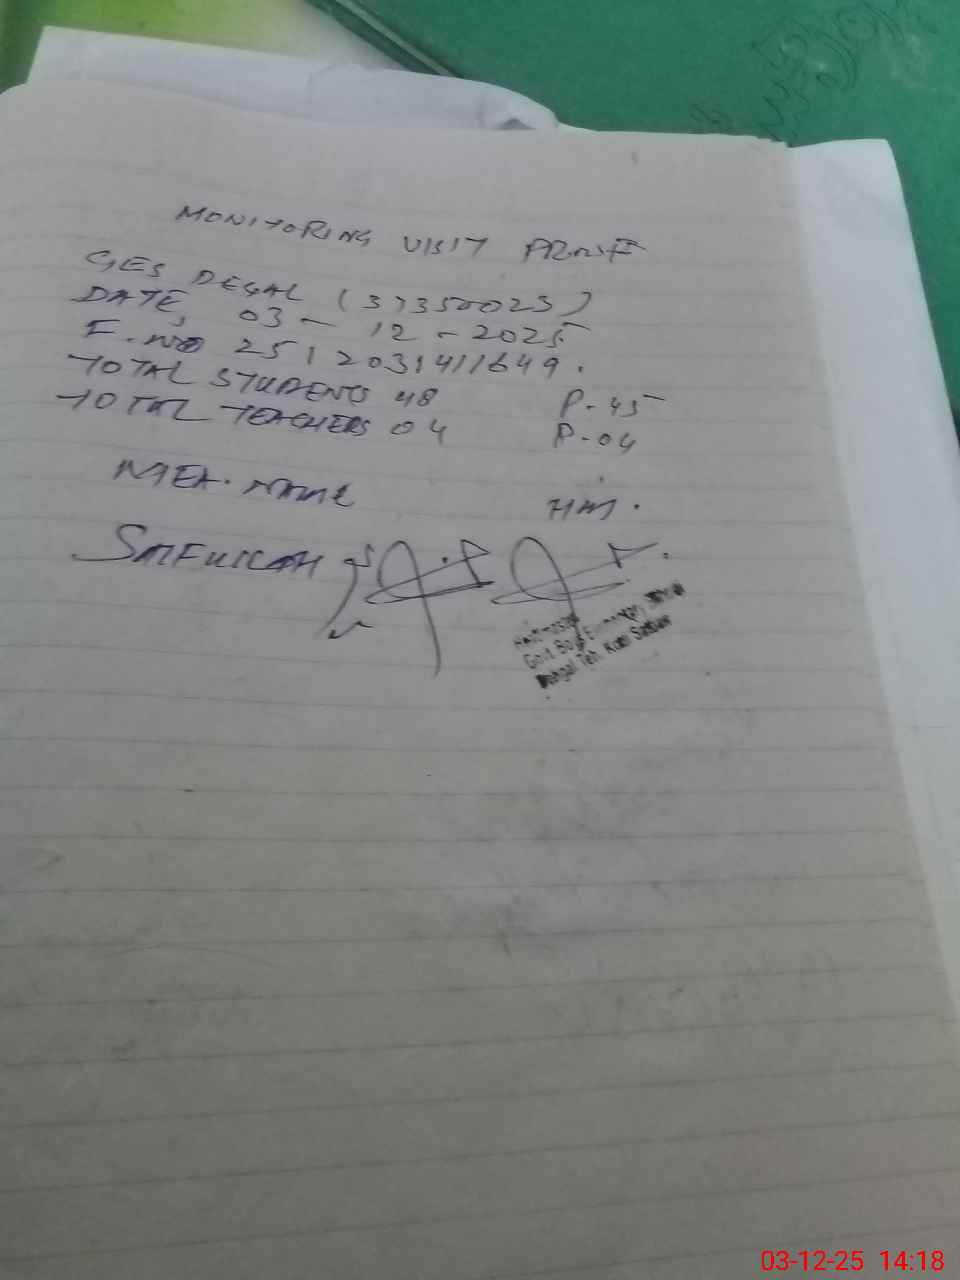 MONITORING VISIT PROOF
GES DEGAL (37350023)
DATE, 03 - 12 - 2025
F. NO 2512031411649.
TOTAL STUDENTS 48 P-45
TOTAL TEACHERS 04 P-04
MEA. NAME HM.
SAIFULLAH
Govt Boys
Teh.
03-12-25 14:18